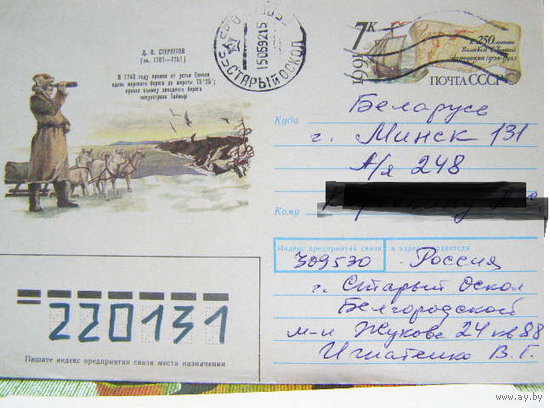 Д. В. СТЕРЛЕГОВ
(ок. 1707—1757)
В 1740 году прошел от устья Енисея
вдоль морского берега до широты 75°26';
провел съемку западного берега
полуострова Таймыр
15069215
СТАРЫЙ ОСКОЛ
7к
1991
250-летие
ПОЧТА СССР
Куда Беларусь
г. Минск 131
А/я 248
Кому
Индекс предприятия связи и адрес отправителя
309530 Россия
г. Старый Оскол
Белгородской
м-н Жукова 24 кв 88
Игнатенко В.Г.
220131
Пишите индекс предприятия связи места назначения
www.ay.by